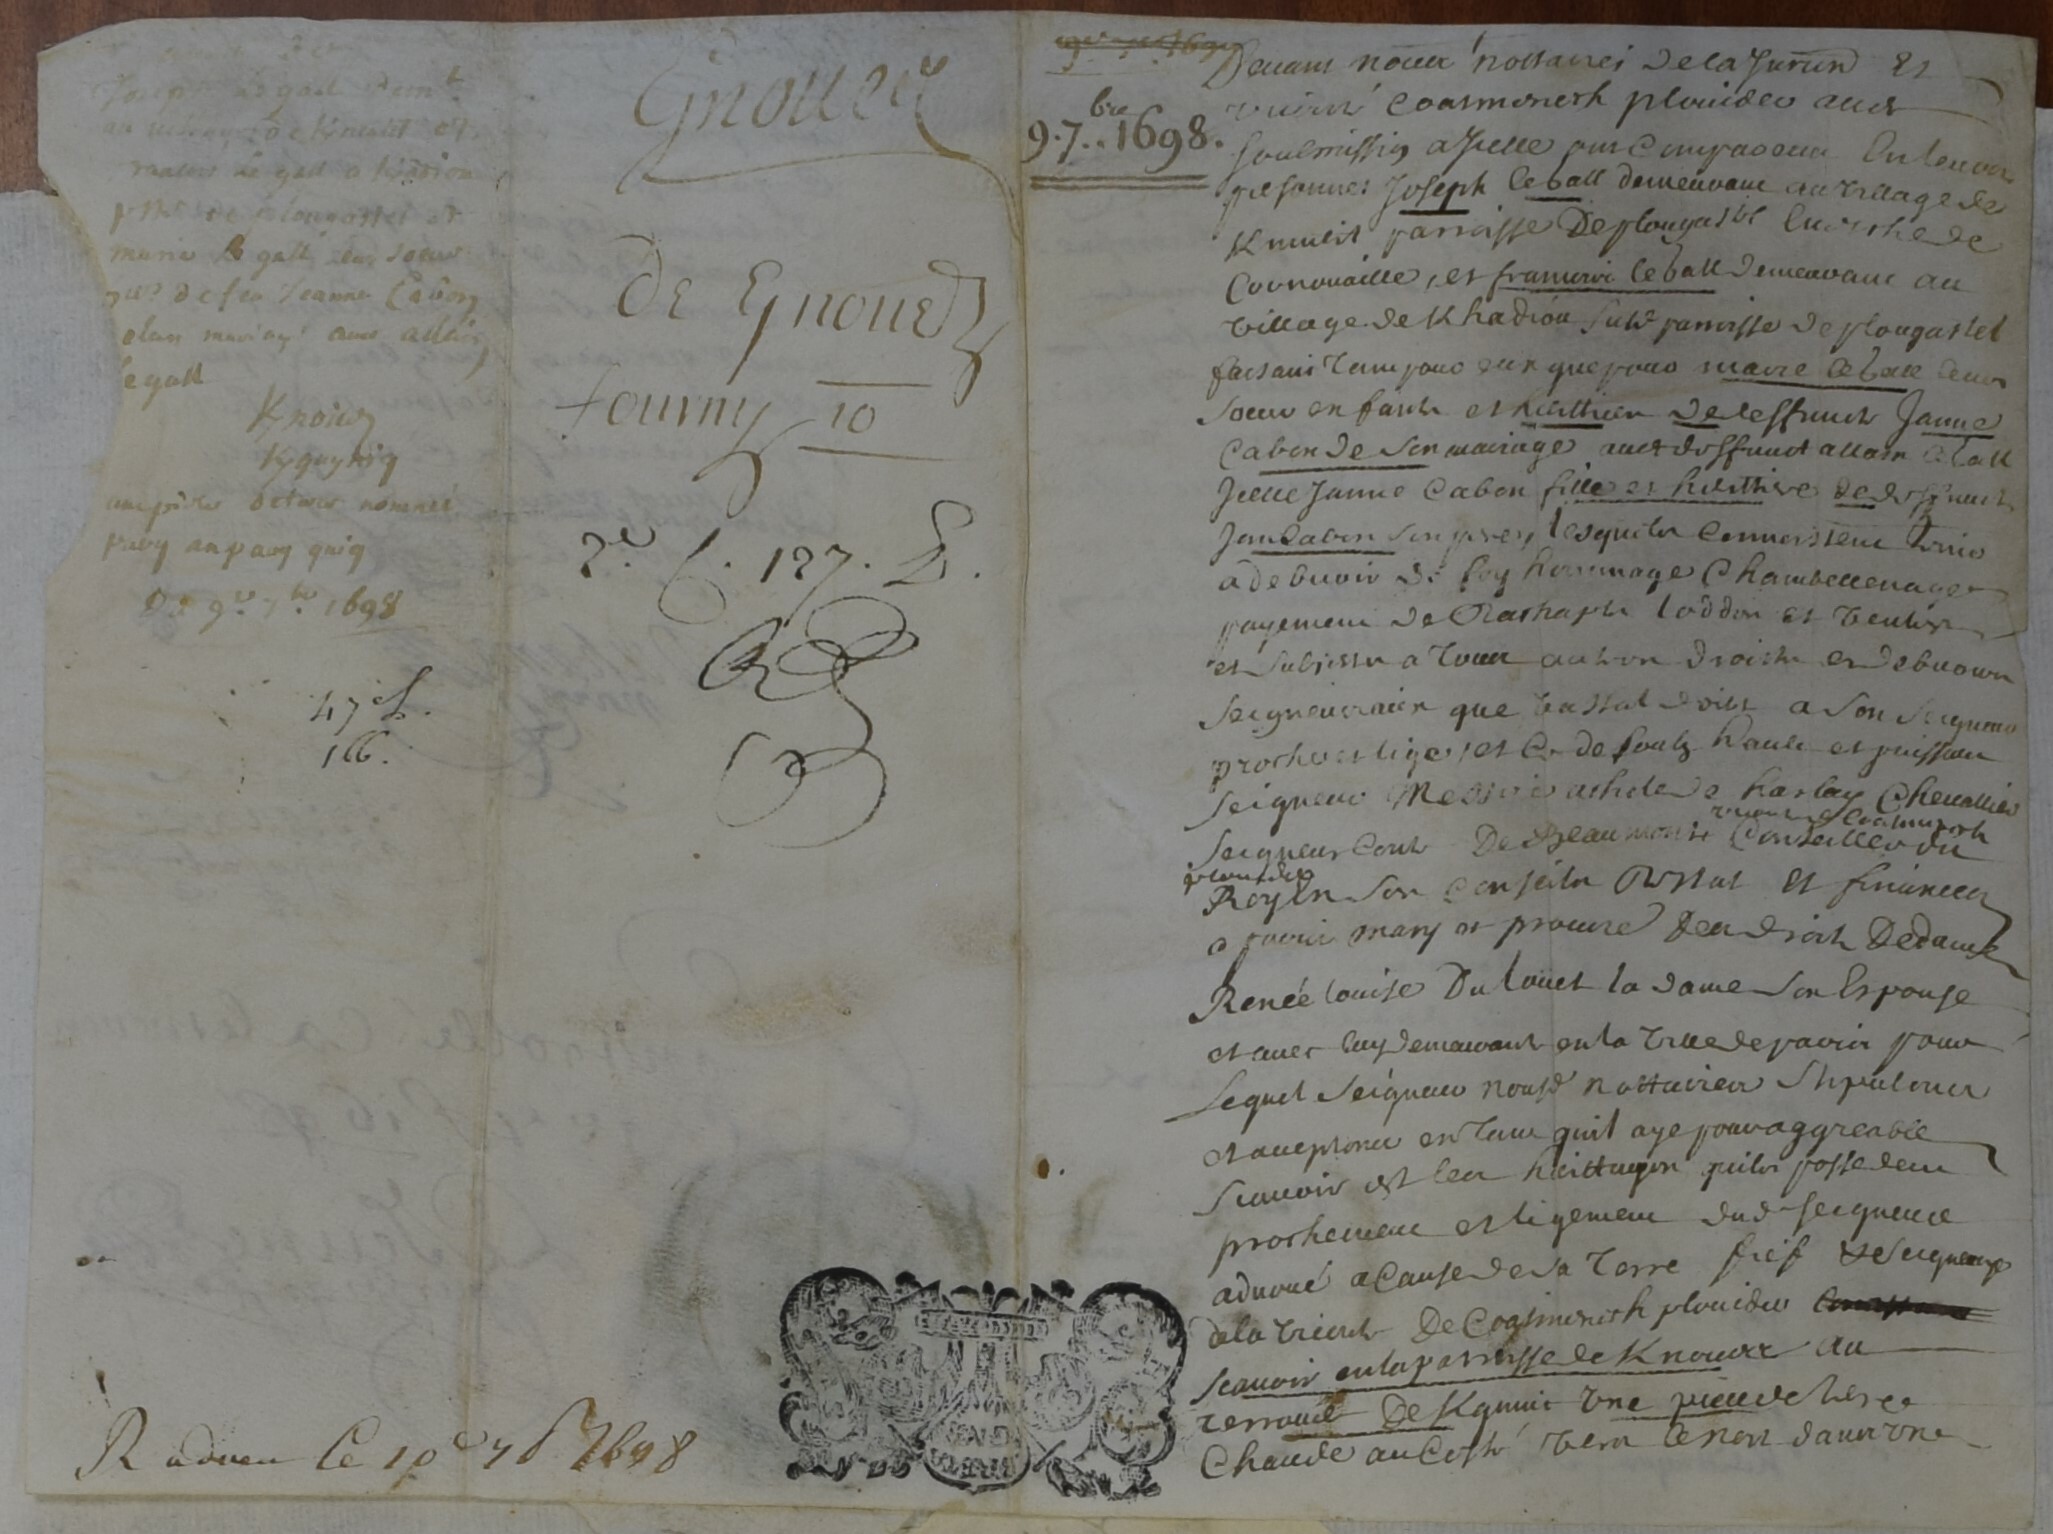 Joseph le gall dem.t
au village de Knevit et
le gall a
p.sse de plougastel et
marie le gall leur soeur
de feu Jeanne Cabon
mariage avec allain
le gall
Knoue
Kguynig
nommé
parc an
Du 9.e 7.bre 1698
47
166.
Gnouer
De Gnouer
fourny 10
2.e 6. 127.
R adveu Le 10e 7b 1698
9.7.bre 1698.
Devant nous nottaires de la Jurisdn Et
vicomté Coatmenech plouider avec
soubmission a Icelle ont Comparu En leurs
personnes Joseph le Gall demeurant au village de
Knevit parroisse De plougastel Evesché de
Cornouaille, et francois le Gall demeurant au
village de Khadiou susd parroisse de plougastel
faisant tant pour eux que pour marie le Gall leur
soeur enfants et herittiers de deffuncte Janne
Cabon de son mariage avec deffunct allain le Gall
Icelle Janne Cabon fille et herittiere de deffunct
Jan Cabon son pere, lesquels Connoissent tenir
a debvoir de foy hommage Chambellenage
payement de Rachapts loddes et ventes
et subjects a tous autres droicts et debvoirs
seigneuriaux que vassal doibt a son seigneur
proche et lige, et de hault et puissant
seigneur Messire achile de harlay Chevallier
vicomte de Coatmenech
seigneur Comte De Beaumont Conseiller du
plouider
Roy En son Conseils D'Estat Et finances
mary et procure des droits De dame
Renée louise Du louet la dame son Espouse
et avec luy demeurants en la ville de paris pour
lequel seigneur nousd nottaires stipulons
et acceptons en tant quil aye pour aggreable
scavoir est les herittages quils possedent
prochement et ligement dud seigneur
advoué a Cause de sa terre fief et seigneurye
de la vicomté De Coatmenech plouider
scavoir en la parroisse de Knouez au
terrouer De Kgunic Une piece de terre
Chaude au Costé vers le nort dans Une